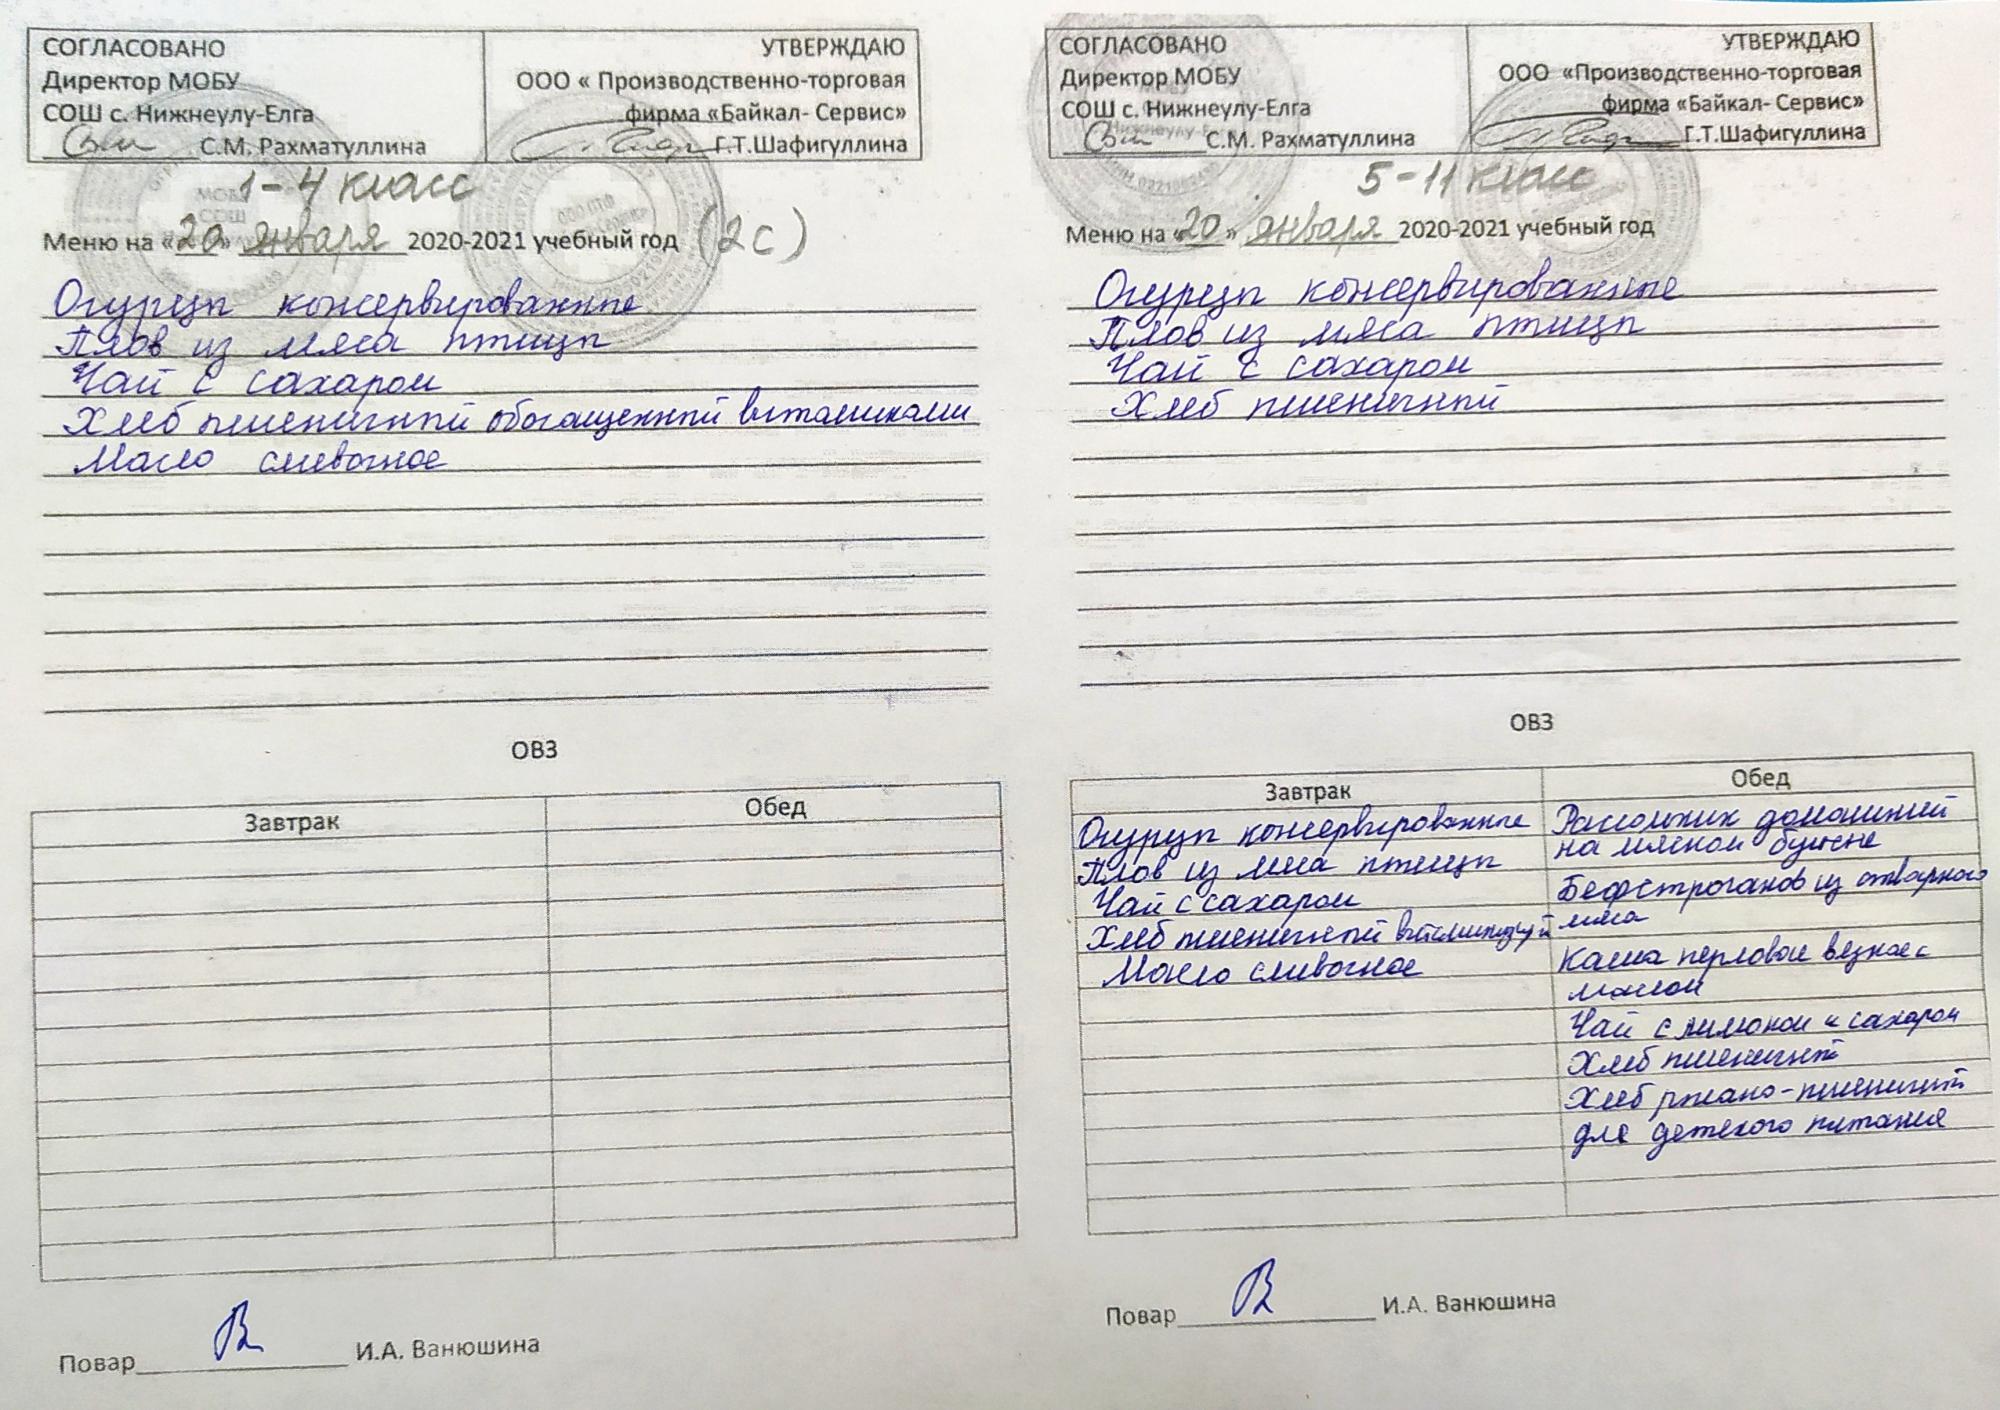 СОГЛАСОВАНО
Директор МОБУ
СОШ с. Нижнеулу-Елга
С.М. Рахматуллина
УТВЕРЖДАЮ
ООО « Производственно-торговая
фирма «Байкал- Сервис»
Г.Т.Шафигуллина
1-4 класс
Меню на «20» января 2020-2021 учебный год (2с)
Огурцы консервированные
Плов из мяса птицы
Чай с сахаром
Хлеб пшеничный обогащенный витаминами
Масло сливочное
ОВЗ
Завтрак Обед
Повар И.А. Ванюшина
СОГЛАСОВАНО
Директор МОБУ
СОШ с. Нижнеулу-Елга
С.М. Рахматуллина
УТВЕРЖДАЮ
ООО «Производственно-торговая
фирма «Байкал- Сервис»
Г.Т.Шафигуллина
5-11 класс
Меню на «20» января 2020-2021 учебный год
Огурцы консервированные
Плов из мяса птицы
Чай с сахаром
Хлеб пшеничный
ОВЗ
Завтрак
Огурцы консервированные
Плов из мяса птицы
Чай с сахаром
Хлеб пшеничный
Масло сливочное
Обед
Рассольник домашний
на мясном бульоне
Бефстроганов из отварного
мяса
Каша перловая вязкая с
маслом
Чай с лимоном и сахаром
Хлеб пшеничный
Хлеб ржано-пшеничный
для детского питания
Повар И.А. Ванюшина